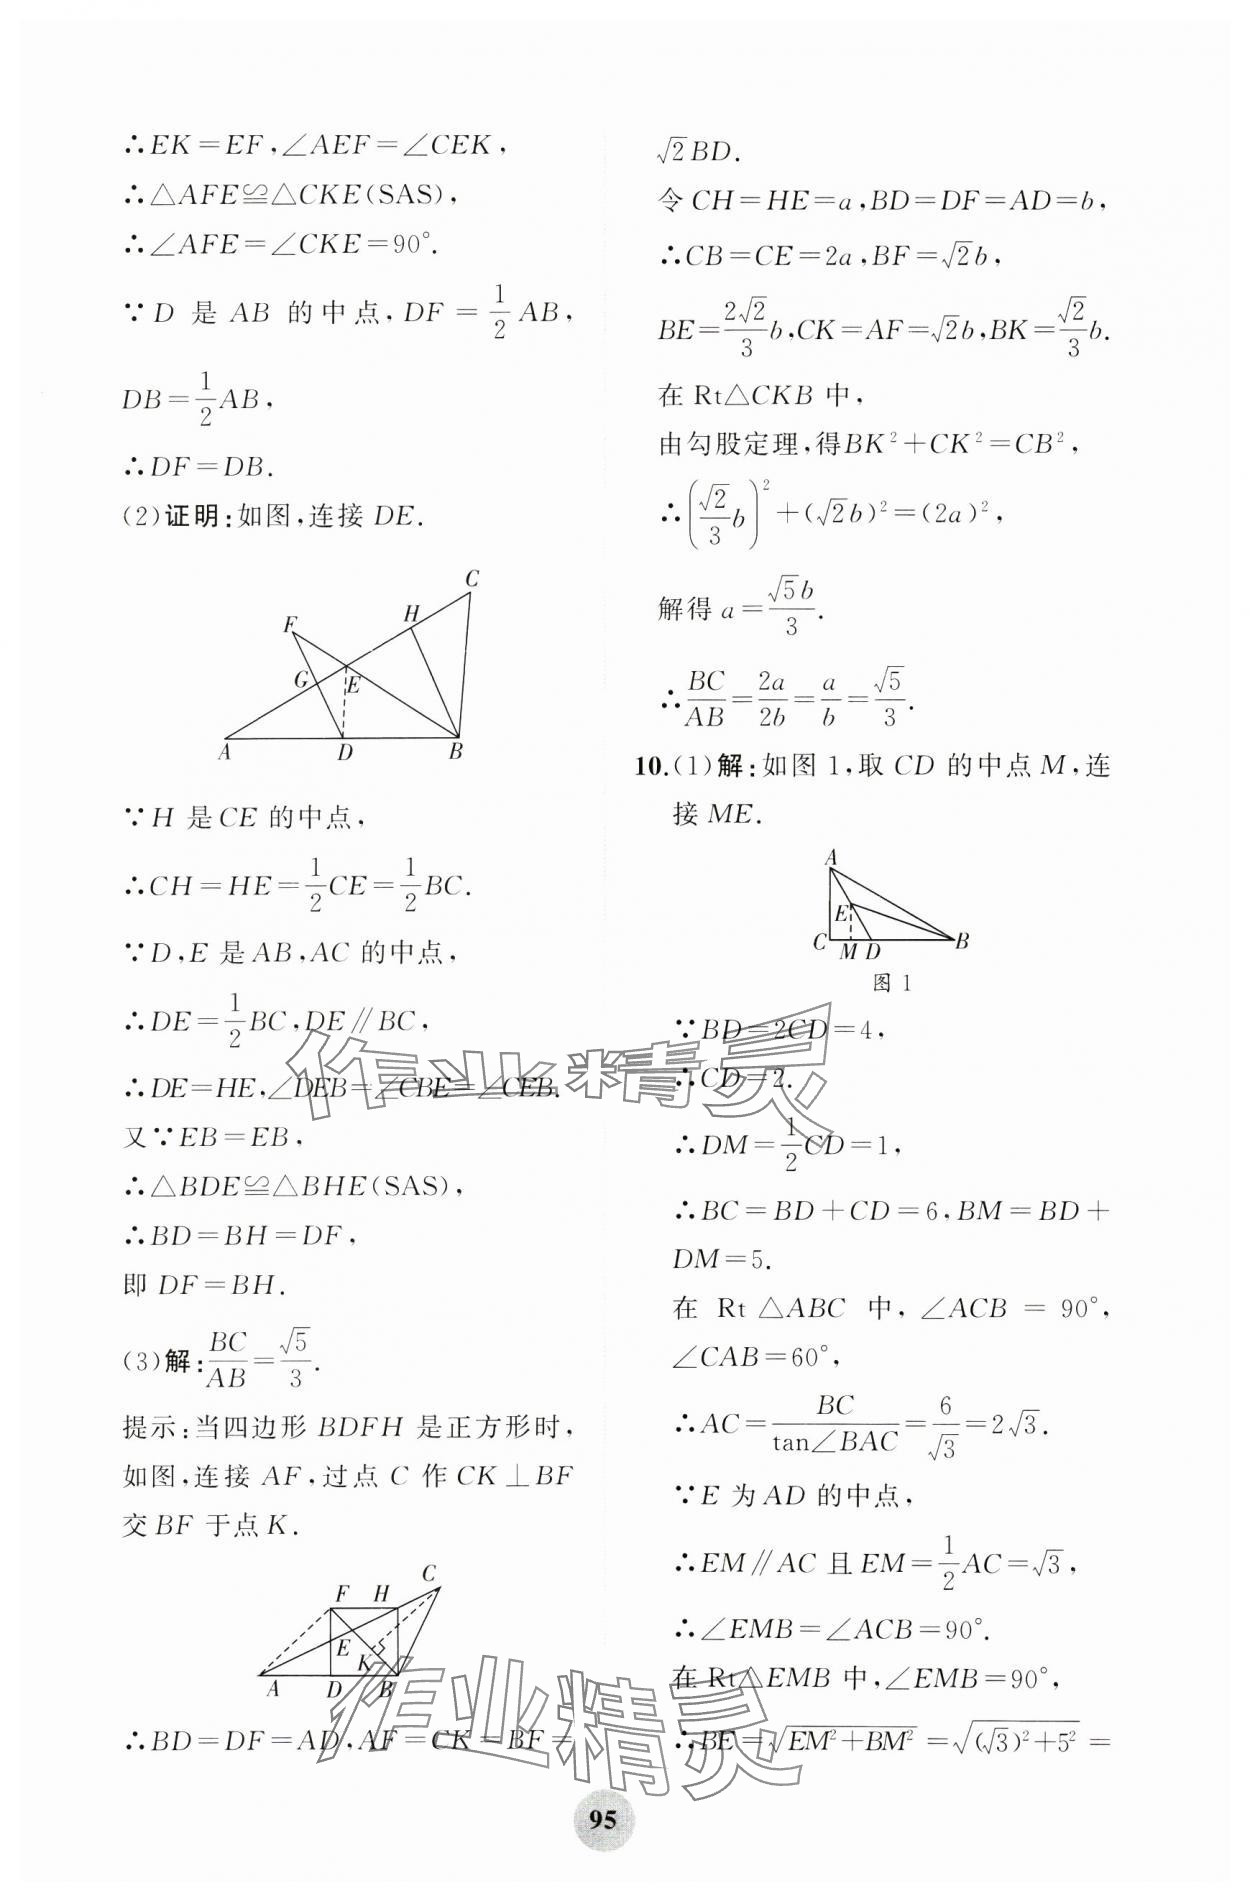 ∴EK=EF,∠AEF=∠CEK,
∴△AFE≌△CKE(SAS),
∴∠AFE=∠CKE=90°.
∵D 是 AB 的中点,DF=1/2 AB,
DB=1/2 AB,
∴DF=DB.
(2)证明:如图,连接 DE.
C
H
F
G E
A D B
∵H 是 CE 的中点,
∴CH=HE=1/2 CE=1/2 BC.
∵D,E 是 AB,AC 的中点,
∴DE=1/2 BC,DE∥BC,
∴DE=HE,∠DEB=∠CBE=∠CEB.
又∵EB=EB,
∴△BDE≌△BHE(SAS),
∴BD=BH=DF,
即 DF=BH.
(3)解:BC/AB=√5/3.
提示:当四边形 BDFH 是正方形时,
如图,连接 AF,过点 C 作 CK⊥BF
交 BF 于点 K.
C
F H
E K
A D B
∴BD=DF=AD,AF=CK=BF=
√2BD.
令 CH=HE=a,BD=DF=AD=b,
∴CB=CE=2a,BF=√2b,
BE=2√2/3 b,CK=AF=√2b,BK=√2/3 b.
在 Rt△CKB 中,
由勾股定理,得BK²+CK²=CB²,
∴(√2/3 b)²+(√2b)²=(2a)²,
解得 a=√5b/3.
∴BC/AB=2a/2b=a/b=√5/3.
10.(1)解:如图 1,取 CD 的中点 M,连
接 ME.
A
E
C M D B
图 1
∵BD=2CD=4,
∴CD=2.
∴DM=1/2 CD=1,
∴BC=BD+CD=6,BM=BD+
DM=5.
在 Rt△ABC 中,∠ACB=90°,
∠CAB=60°,
∴AC=BC/tan∠BAC=6/√3=2√3.
∵E 为 AD 的中点,
∴EM∥AC 且 EM=1/2 AC=√3,
∴∠EMB=∠ACB=90°.
在 Rt△EMB 中,∠EMB=90°,
∴BE=√(EM²+BM²)=√((√3)²+5²)=
作业精灵
作业精灵
95